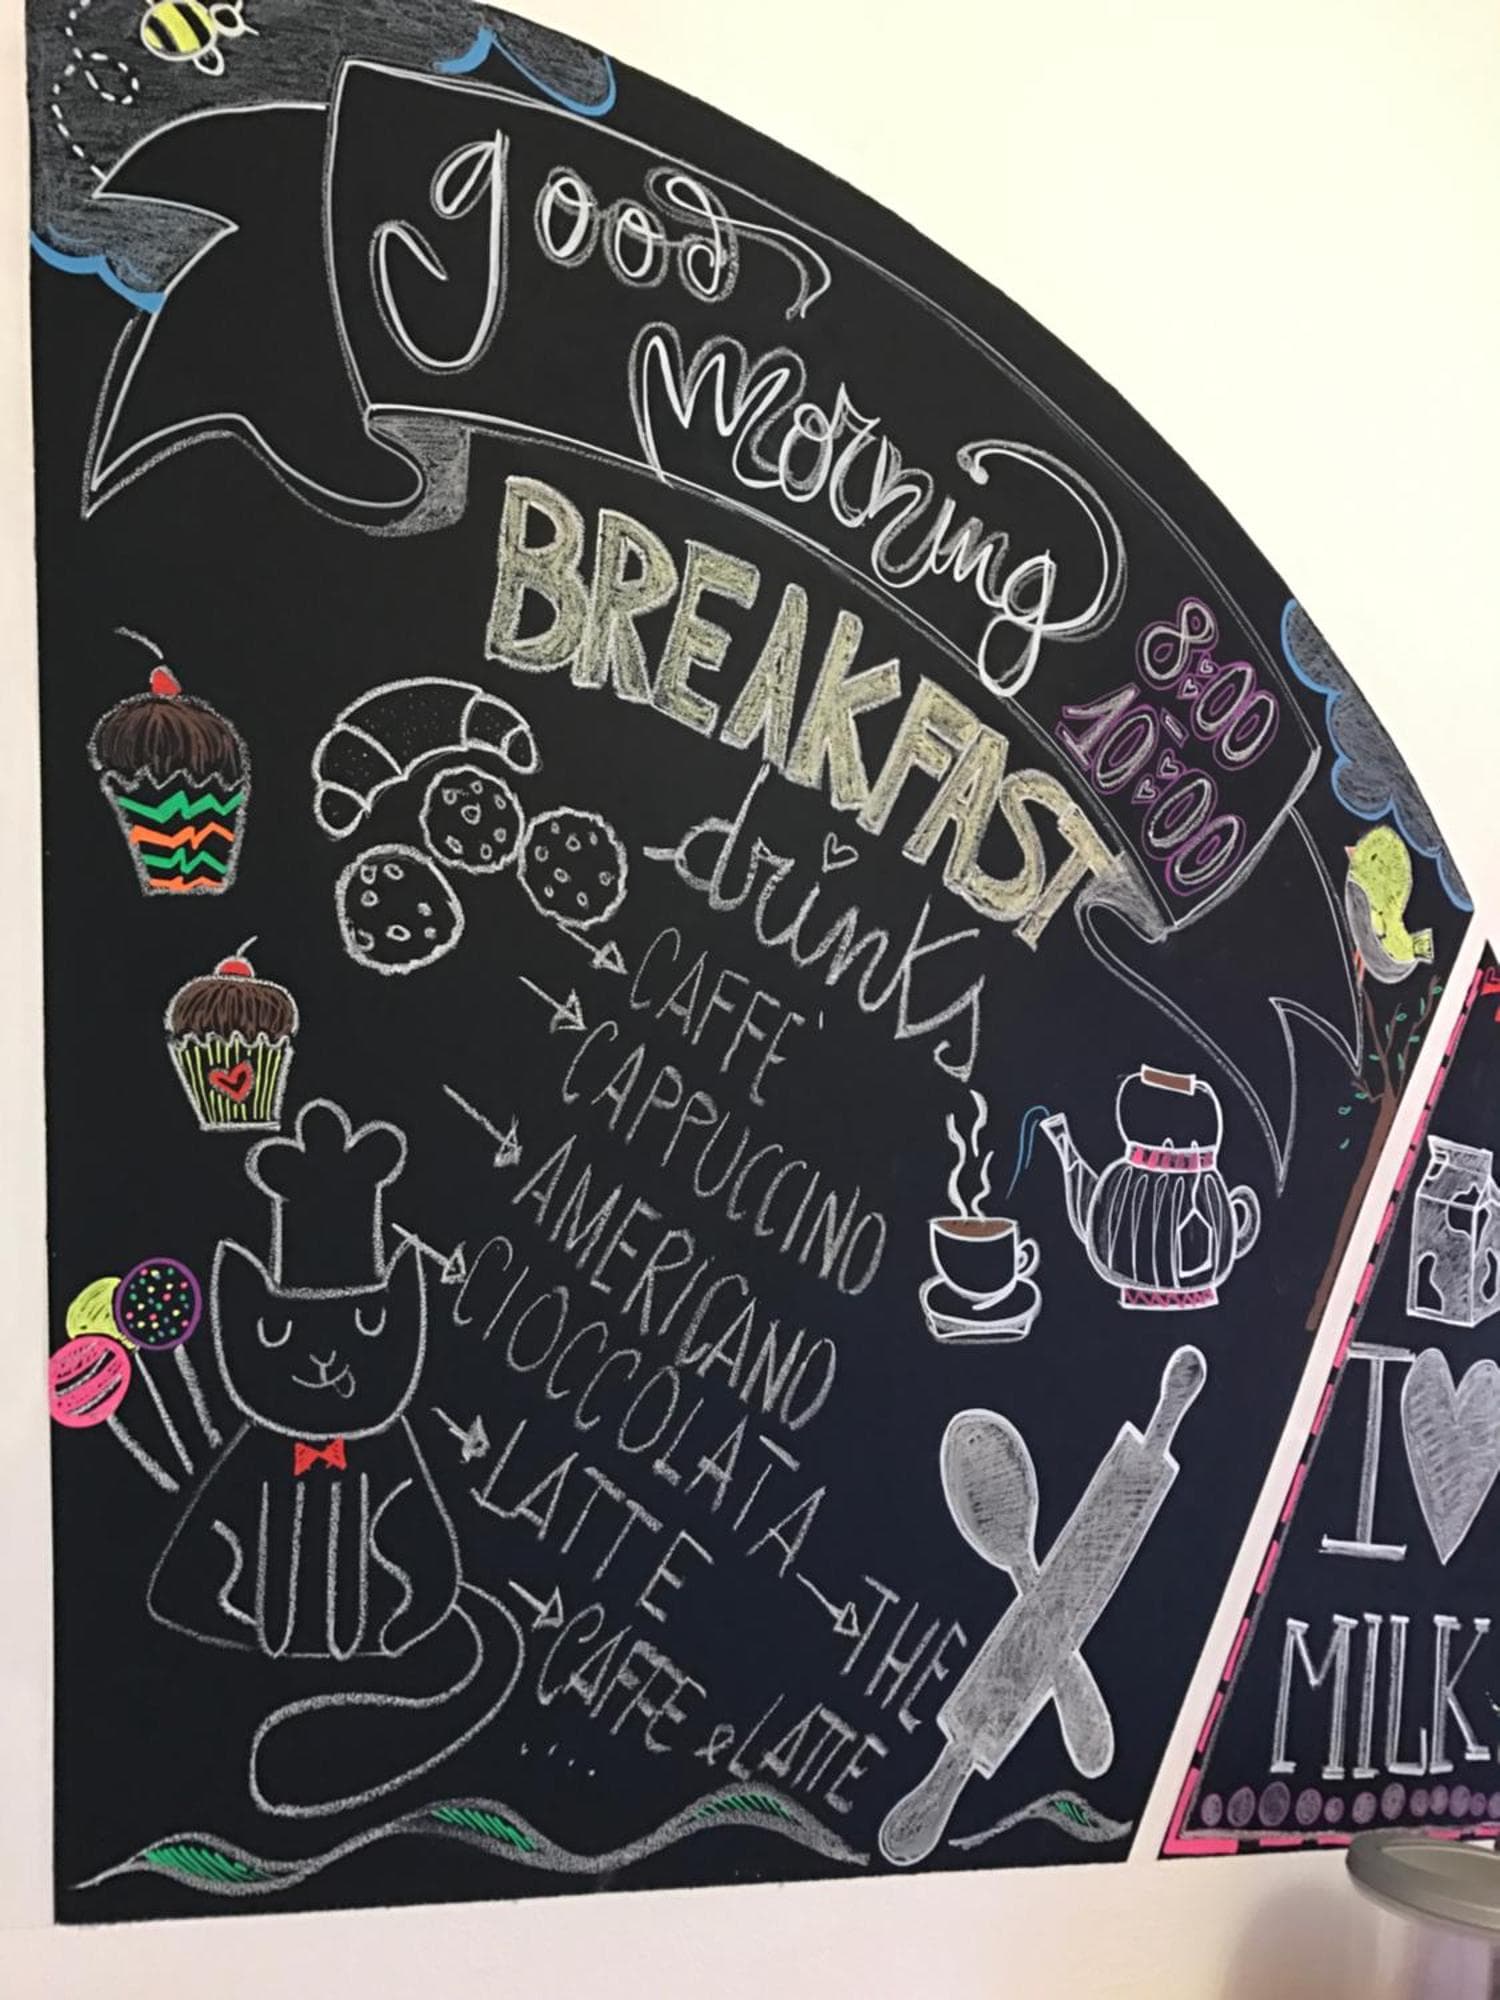 good
morning
8:00
10:00
BREAKFAST
drinks
CAFFE'
CAPPUCCINO
AMERICANO
CIOCCOLATA
LATTE
THE
CAFFE e LATTE
...
I
MILK